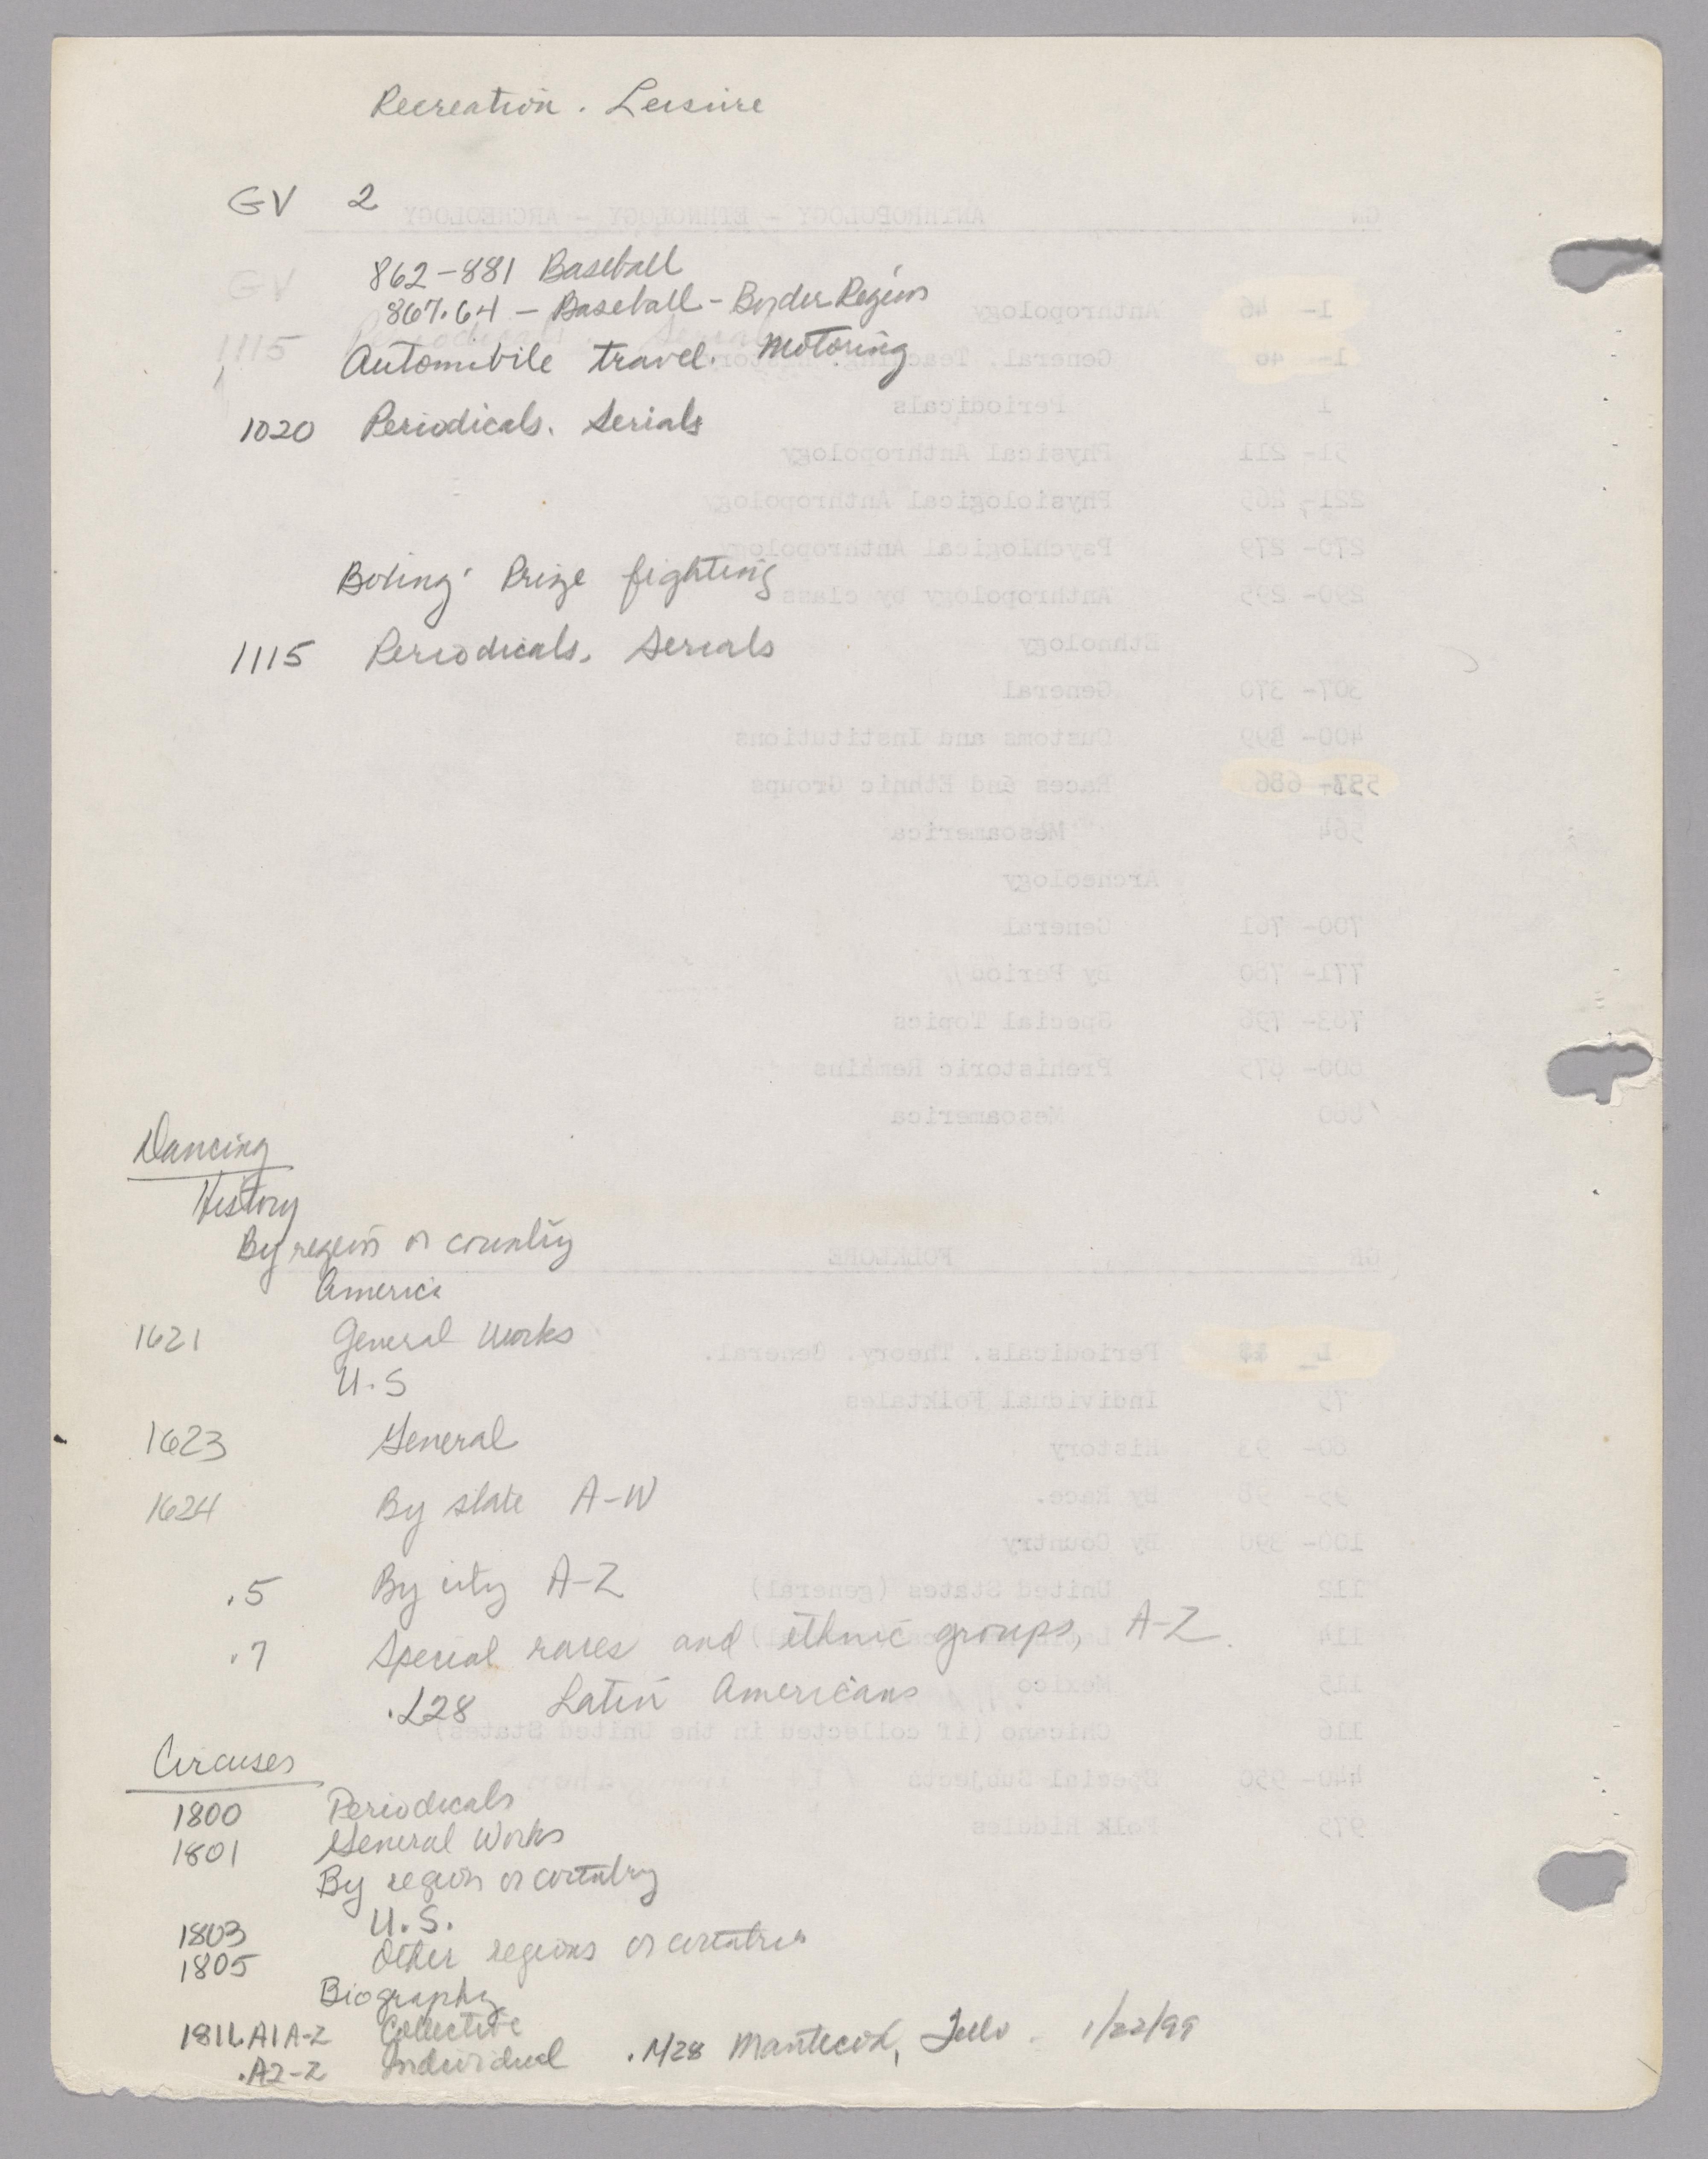 Recreation. Leisure
GV 2
862-881 Baseball
867.64 - Baseball - Border Region
Automobile travel. Motoring
1020 Periodicals. Serials
Boxing. Prize fighting
1115 Periodicals. Serials
Dancing
History
By region or country
America
1621 General Works
U.S
1623 General
1624 By state A-W
.5 By city A-Z
.7 Special races and ethnic groups, A-Z.
.L28 Latin Americans
Circuses
1800 Periodicals
1801 General Works
By region or country
U.S.
1803
1805 Other regions or countries
Biography
1811.A1A-Z Collective
.A2-Z Individual .M28 Mantecon, 1/22/99